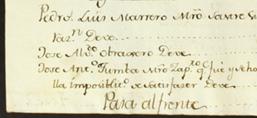 Pedro Luis Marrero Mro Sastre
Var.n Deve
Jose Alv.o Otravero Deve
Jose Ant.o Tumba Mro Zap.to q.e fue y se ha
lla imposibilit.o de satisfaser Deve
Pasa al frente